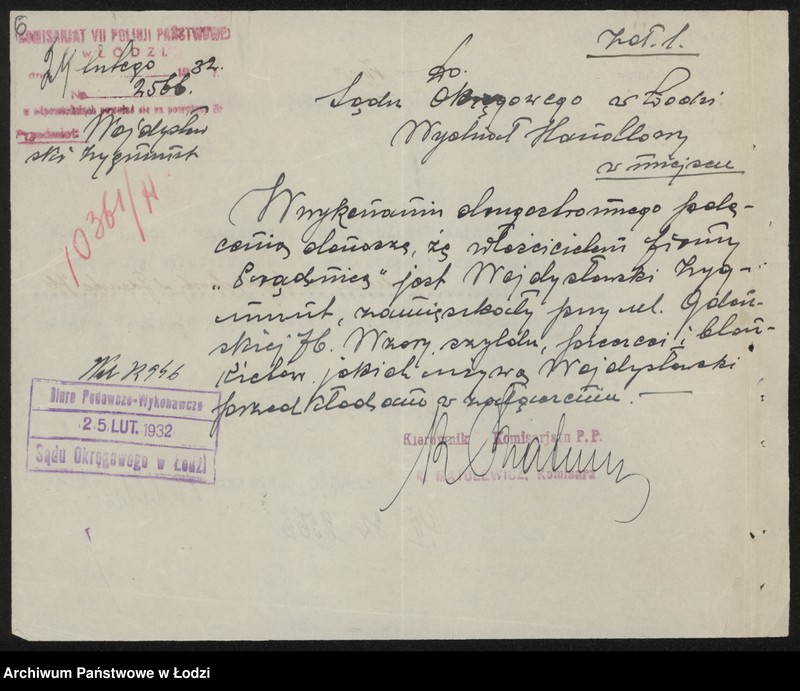 6
KOMISARJAT VII POLICJI PAŃSTWOWEJ
w ŁODZI.
24 lutego 1932 r.
№ 2566.
w odpowiedziach powołać się na powyższy №
Przedmiot: Wojdysław
ski Zygmunt
10361/H
Zał. 1.
Do
Sądu Okręgowego w Łodzi
Wydział Handlowy
w miejscu
W wykonaniu drugostronnego pole-
cenia donoszę, że właścicielem firmy
„Prądnica" jest Wojdysławski Zyg-
munt, zamieszkały przy ul. Gdań-
skiej 76. Wzory szyldu, pieczęci i blan-
kietów jakich używa Wojdysławski
przedkładam w załączeniu. —
Biuro Podawczo-Wykonawcze
25. LUT. 1932
Sądu Okręgowego w Łodzi
Kierownik Komisarjatu P. P.
MATULEWICZ, Komisarz
Archiwum Państwowe w Łodzi